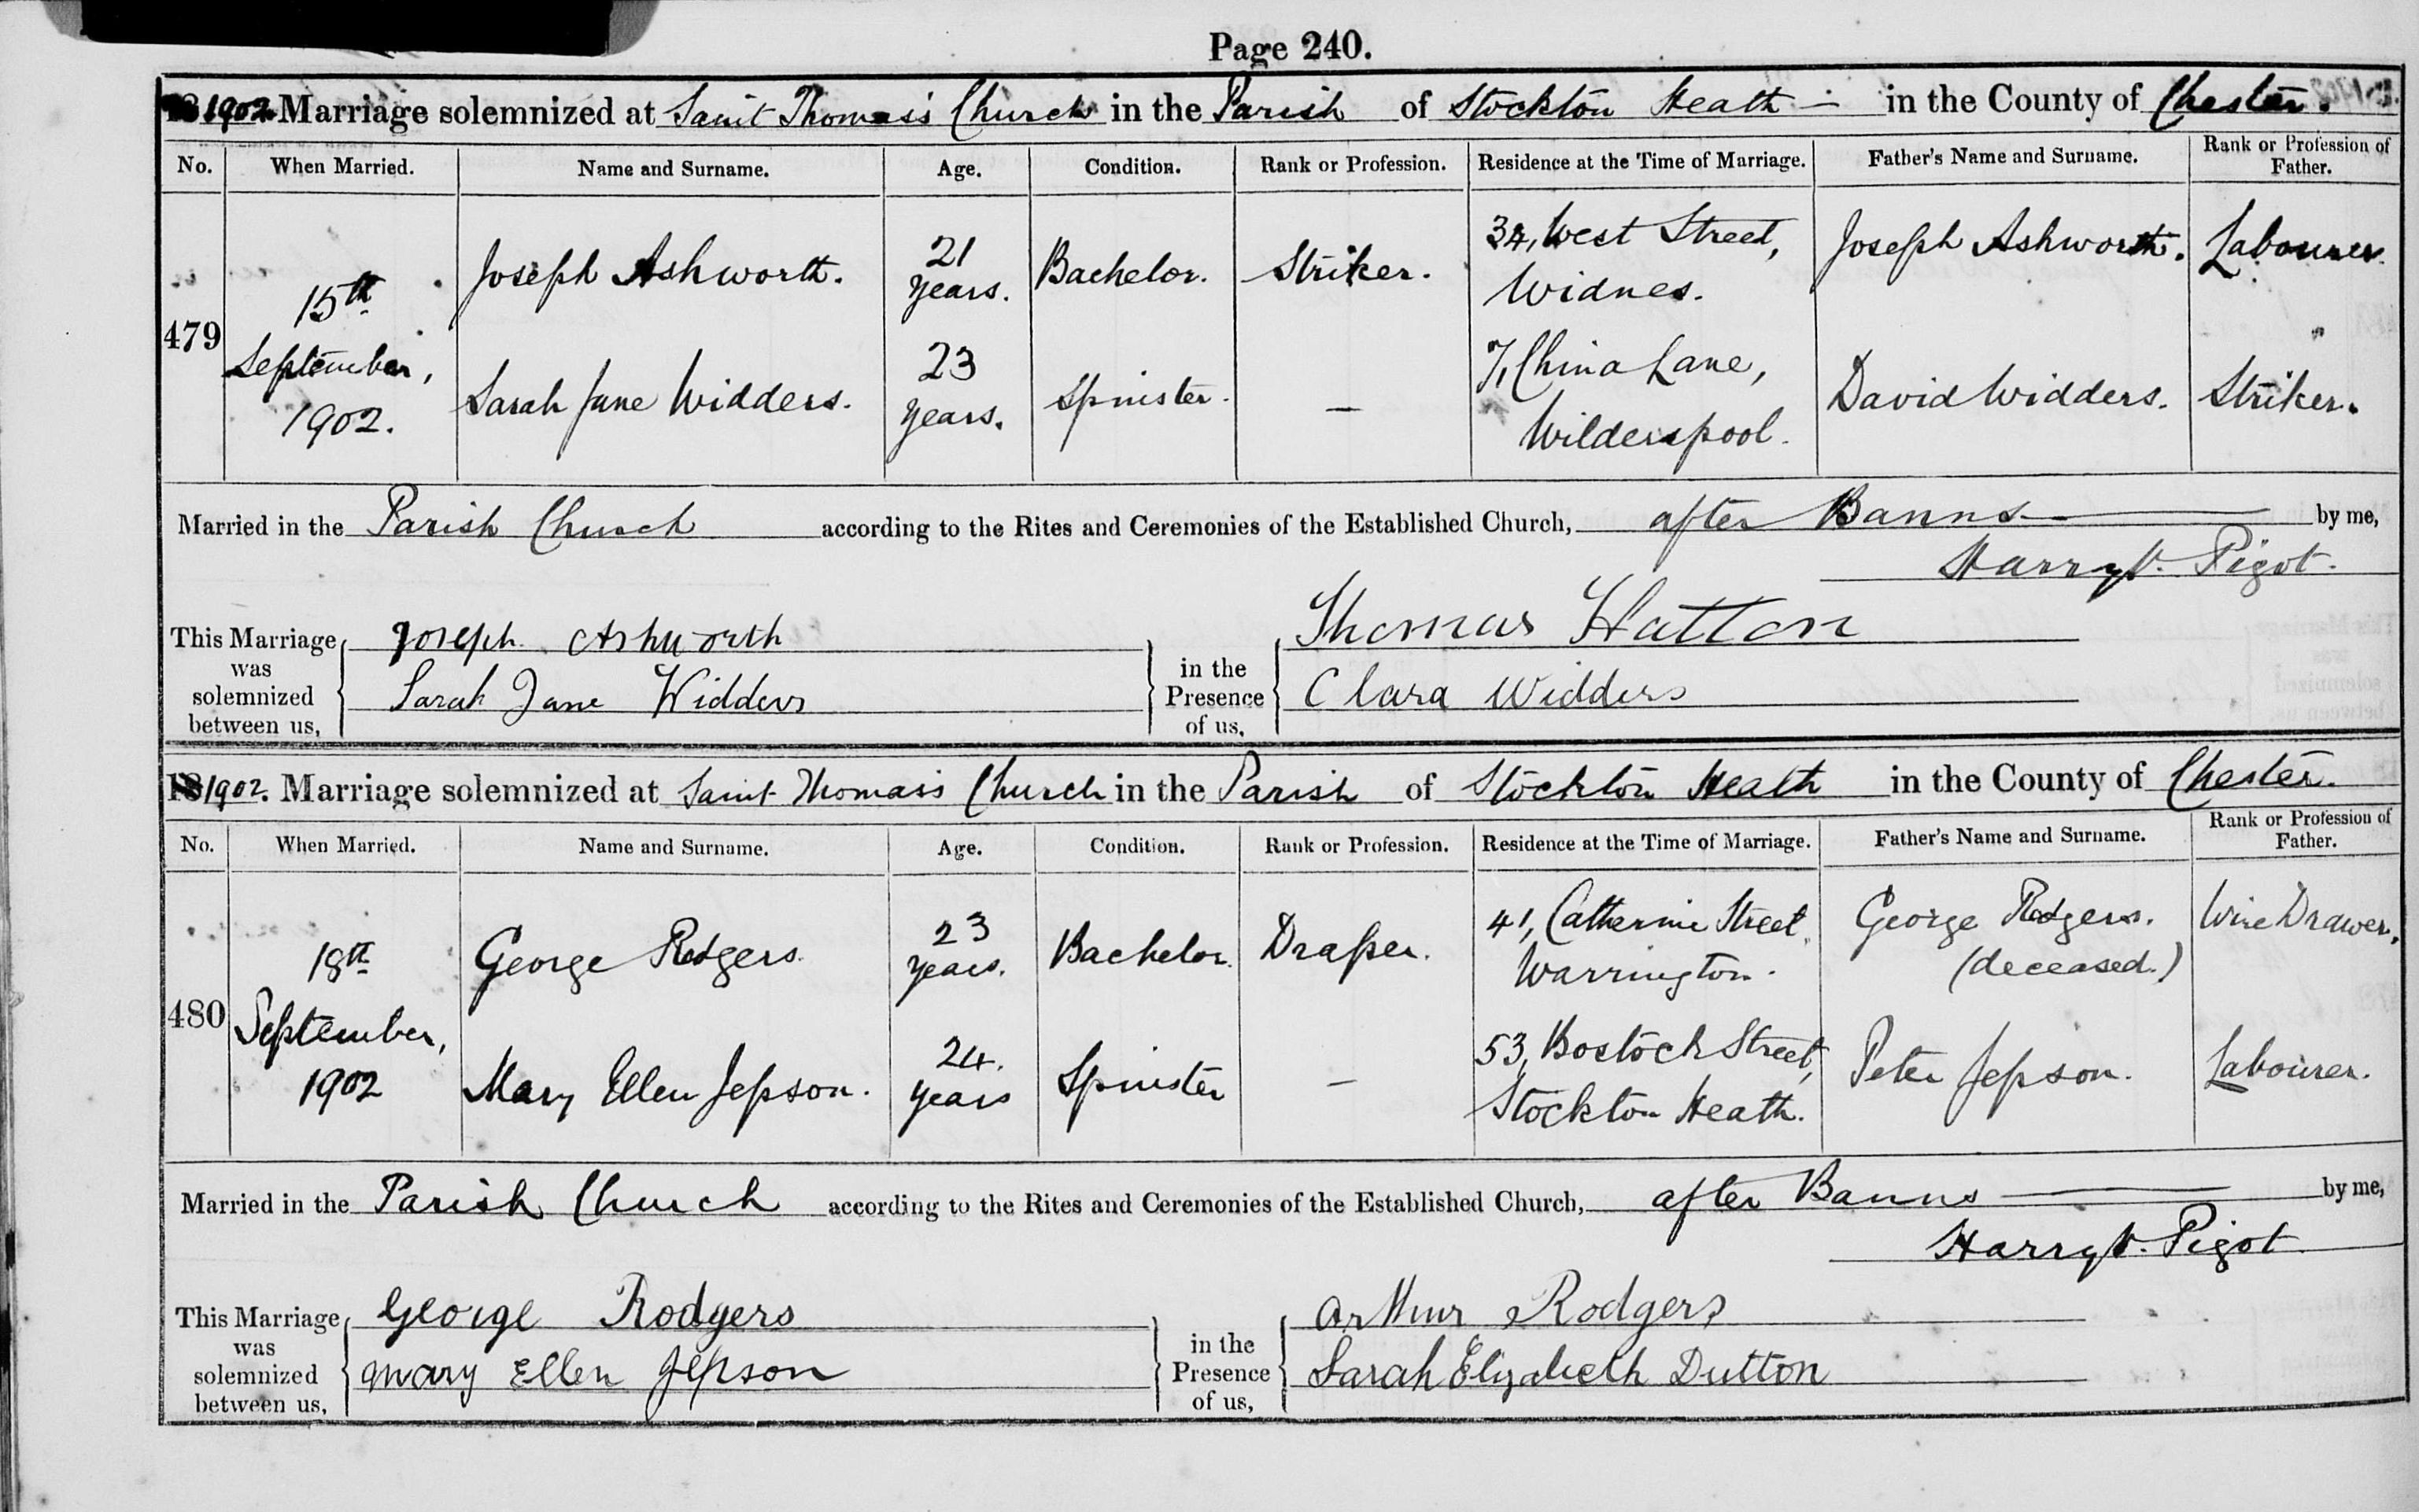 Page 240.
1902 Marriage solemnized at Saint Thomas's Church in the Parish of Stockton Heath in the County of Chester.
No. When Married. Name and Surname. Age. Condition. Rank or Profession. Residence at the Time of Marriage. Father's Name and Surname. Rank or Profession of Father.
479 15th September, 1902. Joseph Ashworth. 21 years. Bachelor. Striker. 34, West Street, Widnes. Joseph Ashworth. Labourer.
Sarah Jane Widders. 23 years. Spinster. — 7, China Lane, Wilderspool. David Widders. Striker.
Married in the Parish Church according to the Rites and Ceremonies of the Established Church, after Banns by me,
Harry V. Pigot.
This Marriage was solemnized between us, Joseph Ashworth
Sarah Jane Widders
in the Presence of us, Thomas Hatton
Clara Widders
181902. Marriage solemnized at Saint Thomas's Church in the Parish of Stockton Heath in the County of Chester.
No. When Married. Name and Surname. Age. Condition. Rank or Profession. Residence at the Time of Marriage. Father's Name and Surname. Rank or Profession of Father.
480 18th September, 1902 George Rodgers. 23 years. Bachelor. Draper. 41, Catherine Street, Warrington. George Rodgers. (deceased.) Wire Drawer.
Mary Ellen Jepson. 24. years Spinster — 53, Bostock Street, Stockton Heath. Peter Jepson. Labourer.
Married in the Parish Church according to the Rites and Ceremonies of the Established Church, after Banns by me,
Harry V. Pigot
This Marriage was solemnized between us, George Rodgers
Mary Ellen Jepson
in the Presence of us, Arthur Rodgers
Sarah Elizabeth Dutton